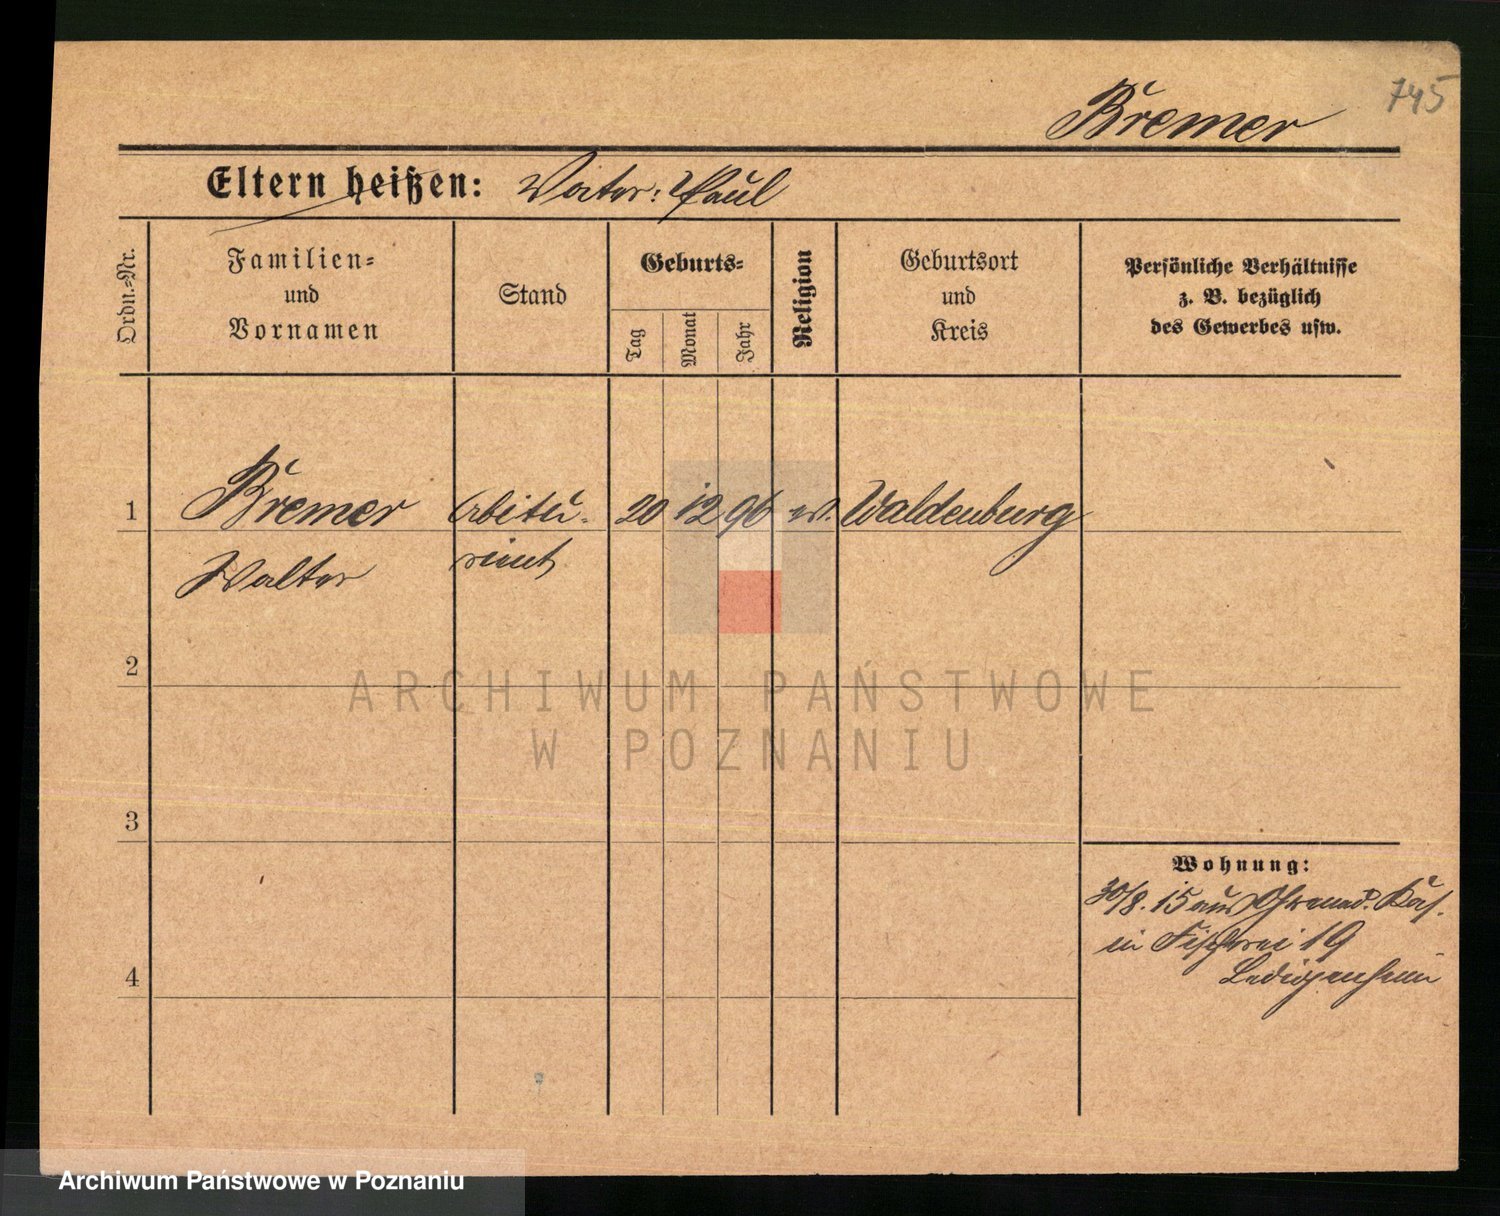 745
Bremer
Eltern heißen: Vater: Paul
Ordn.=Nr.
Familien=
und
Vornamen
Stand
Geburts=
Tag
Monat
Jahr
Religion
Geburtsort
und
Kreis
Persönliche Verhältnisse
z. B. bezüglich
des Gewerbes usw.
1 Bremer Abitu- 20 12 96 ev. Waldenburg
Walter rient
2
ARCHIWUM PAŃSTWOWE
W POZNANIU
3
Wohnung:
30/8. 15 aus
in Fischerei 19
Ledigenheim
4
Archiwum Państwowe w Poznaniu